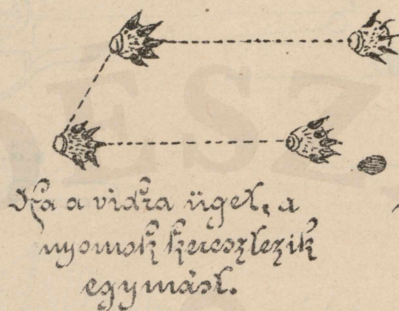 Ha a vidra üget, a
nyomok keresztezik
egymást.